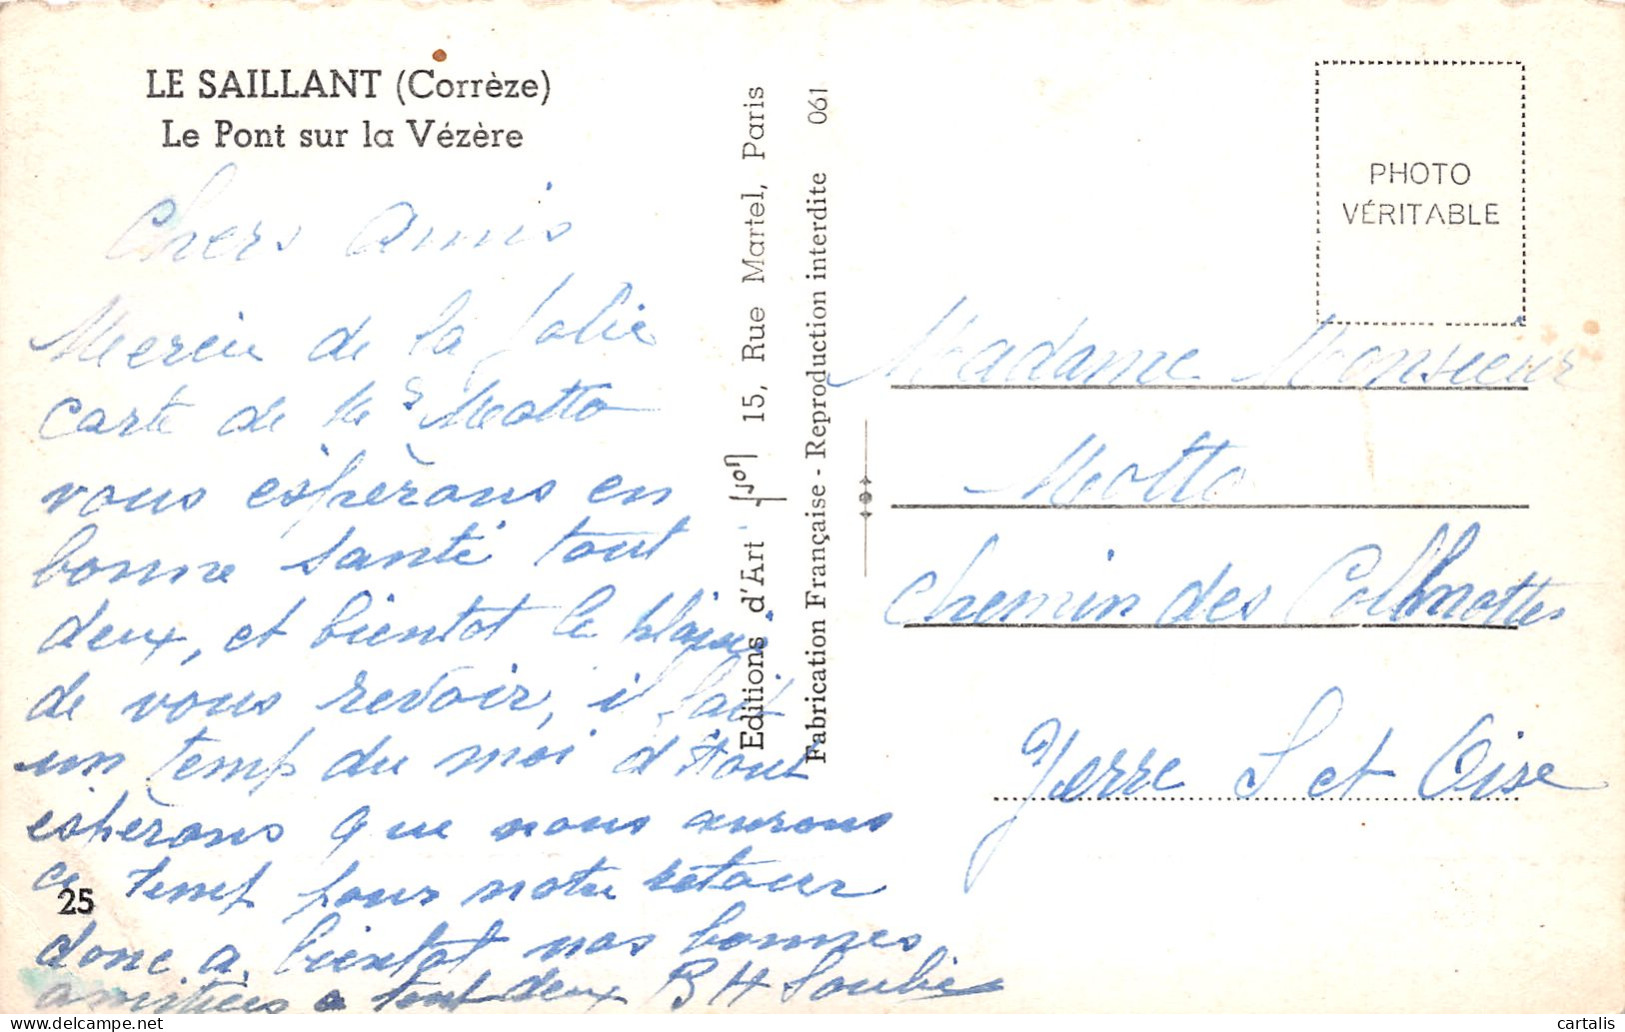 LE SAILLANT (Corrèze)
Le Pont sur la Vézère
Chers Amis
Mercie de la Jolie
carte de Mrs Motto
vous éspèrons en
bonne santé tout
deux, et bientot le
de vous revoir, il fait
un temp du moi d'Aout
éspèrons que nous aurons
ce temp pour notre retour
donc a bientot nos bonnes
amitiées a tout deux B H Soubie
25
Editions d'Art 15, Rue Martel, Paris
Fabrication Française - Reproduction interdite 061
PHOTO
VÉRITABLE
Madame Monsieur
Motto
chemin des
Yerre S et Oise
cartalis